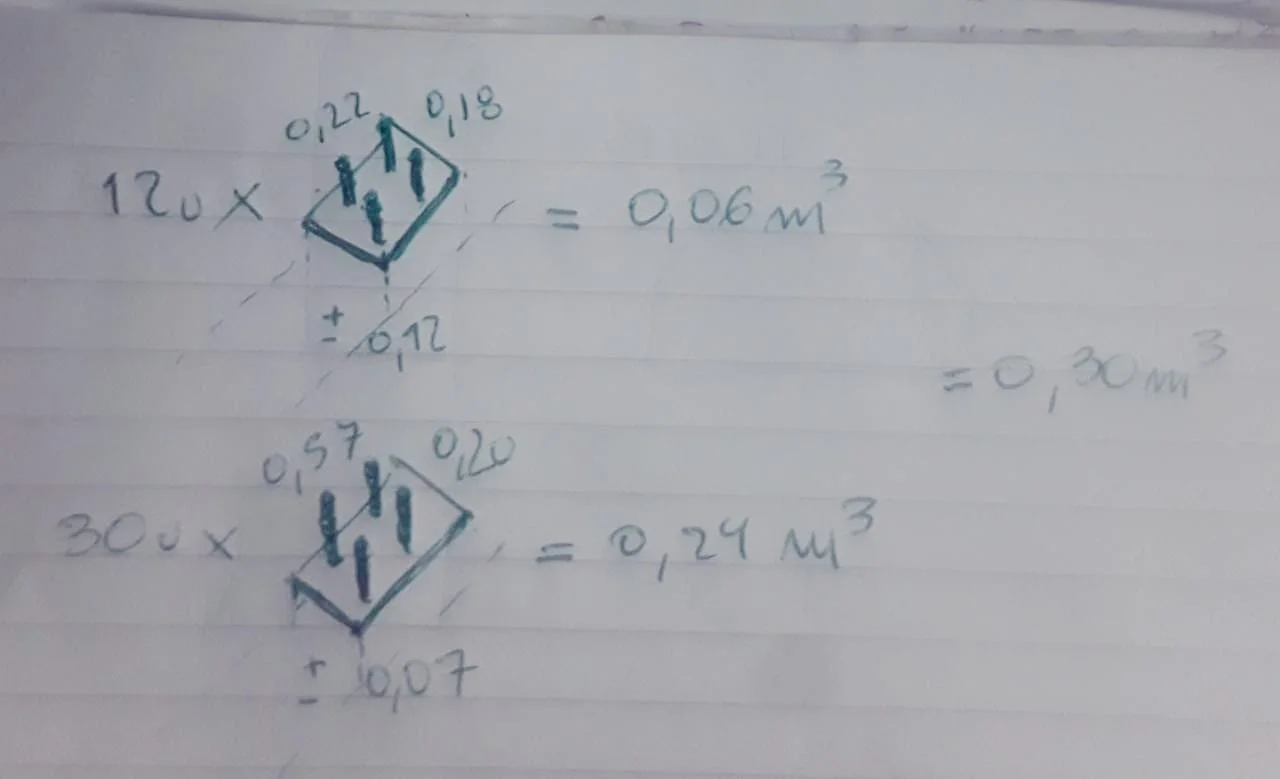 0,22 0,18
12u x = 0,06 m³
± 0,12
= 0,30 m³
0,57 0,20
30u x = 0,24 m³
± 0,07